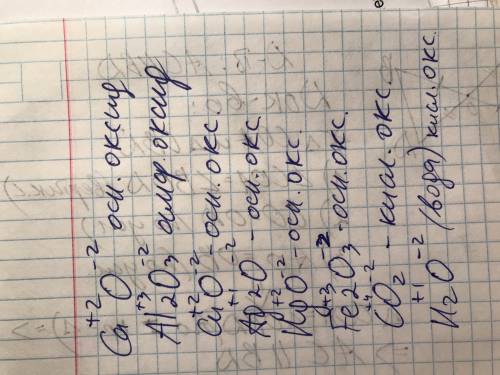 Ca⁺²O⁻² осн. оксид
Al⁺³₂O₃⁻² амф. оксид
Cu⁺²O⁻² - осн. окс.
Ag⁺¹₂O⁻² - осн. окс.
Hg⁺²O⁻² - осн. окс.
Fe⁺³₂O₃⁻² - осн. окс.
C⁺⁴O₂⁻² - кисл. окс.
H⁺¹₂O⁻² (вода) кисл. окс.